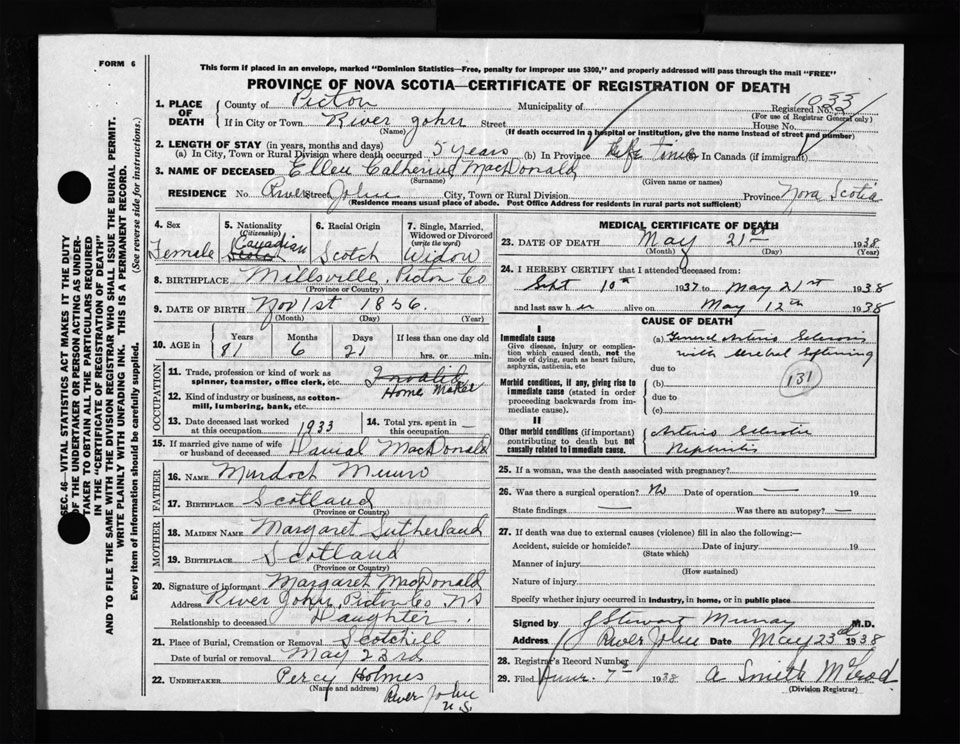 FORM 6
This form if placed in an envelope, marked "Dominion Statistics—Free, penalty for improper use $300," and properly addressed will pass through the mail "FREE"
PROVINCE OF NOVA SCOTIA—CERTIFICATE OF REGISTRATION OF DEATH
1. PLACE OF DEATH County of Pictou Municipality of Registered No. 1033
(For use of Registrar General only)
If in City or Town River John Street House No.
(Name) (If death occurred in a hospital or institution, give the name instead of street and number)
2. LENGTH OF STAY (in years, months and days)
(a) In City, Town or Rural Division where death occurred 5 years (b) In Province Life time In Canada (if immigrant)
3. NAME OF DECEASED Ellen Catherine MacDonald
(Surname) (Given name or names)
RESIDENCE No. River Street John City, Town or Rural Division Province Nova Scotia
(Residence means usual place of abode. Post Office Address for residents in rural parts not sufficient)
4. Sex 5. Nationality (Citizenship) 6. Racial Origin 7. Single, Married, Widowed or Divorced (write the word)
Female Canadian Scotch Scotch Widow
8. BIRTHPLACE Millsville, Pictou Co
(Province or Country)
9. DATE OF BIRTH Nov 1st 1856.
(Month) (Day) (Year)
10. AGE in Years Months Days If less than one day old
81 6 21 hrs. or min.
OCCUPATION
11. Trade, profession or kind of work as spinner, teamster, office clerk, etc. Invalid
Home Maker
12. Kind of industry or business, as cotton-mill, lumbering, bank, etc.
13. Date deceased last worked at this occupation 1933 14. Total yrs. spent in this occupation —
15. If married give name of wife or husband of deceased Danial MacDonald
FATHER
16. NAME Murdoch Munro
17. BIRTHPLACE Scotland
(Province or Country)
MOTHER
18. MAIDEN NAME Margaret Sutherland
19. BIRTHPLACE Scotland
(Province or Country)
20. Signature of informant Margaret MacDonald
Address River John, Pictou Co, NS
Relationship to deceased Daughter.
21. Place of Burial, Cremation or Removal Scotch Hill
Date of burial or removal May 23rd
22. UNDERTAKER Percy Holmes
(Name and address)
River John
N.S.
MEDICAL CERTIFICATE OF DEATH
23. DATE OF DEATH May 21st 1938
(Month) (Day) (Year)
24. I HEREBY CERTIFY that I attended deceased from:
Sept 10th 1937 to May 21st 1938
and last saw h er alive on May 12th 1938
CAUSE OF DEATH
I
Immediate cause
Give disease, injury or complication which caused death, not the mode of dying, such as heart failure, asphyxia, asthenia, etc
(a) General Arterio Sclerosis
with cerebral softening
due to
131
Morbid conditions, if any, giving rise to immediate cause (stated in order proceeding backwards from immediate cause).
(b)
due to
(c)
II
Other morbid conditions (if important) contributing to death but not causally related to immediate cause.
Arterio Sclerotic
Nephritis
25. If a woman, was the death associated with pregnancy?
26. Was there a surgical operation? No Date of operation — 19
State findings — Was there an autopsy? —
27. If death was due to external causes (violence) fill in also the following:—
Accident, suicide or homicide? Date of injury 19
(State which)
Manner of injury
(How sustained)
Nature of injury
Specify whether injury occurred in industry, in home, or in public place
Signed by J Stewart Murray M.D.
Address River John Date May 23rd 1938
28. Registrar's Record Number
29. Filed June 7th 1938 A Smith McLeod
(Division Registrar)
SEC. 46—VITAL STATISTICS ACT MAKES IT THE DUTY
OF THE UNDERTAKER OR PERSON ACTING AS UNDER-
TAKER TO OBTAIN ALL THE PARTICULARS REQUIRED
IN THE "CERTIFICATE OF REGISTRATION OF DEATH"
AND TO FILE THE SAME WITH THE DIVISION REGISTRAR WHO SHALL ISSUE THE BURIAL PERMIT.
WRITE PLAINLY WITH UNFADING INK. THIS IS A PERMANENT RECORD.
Every item of information should be carefully supplied. (See reverse side for instructions.)